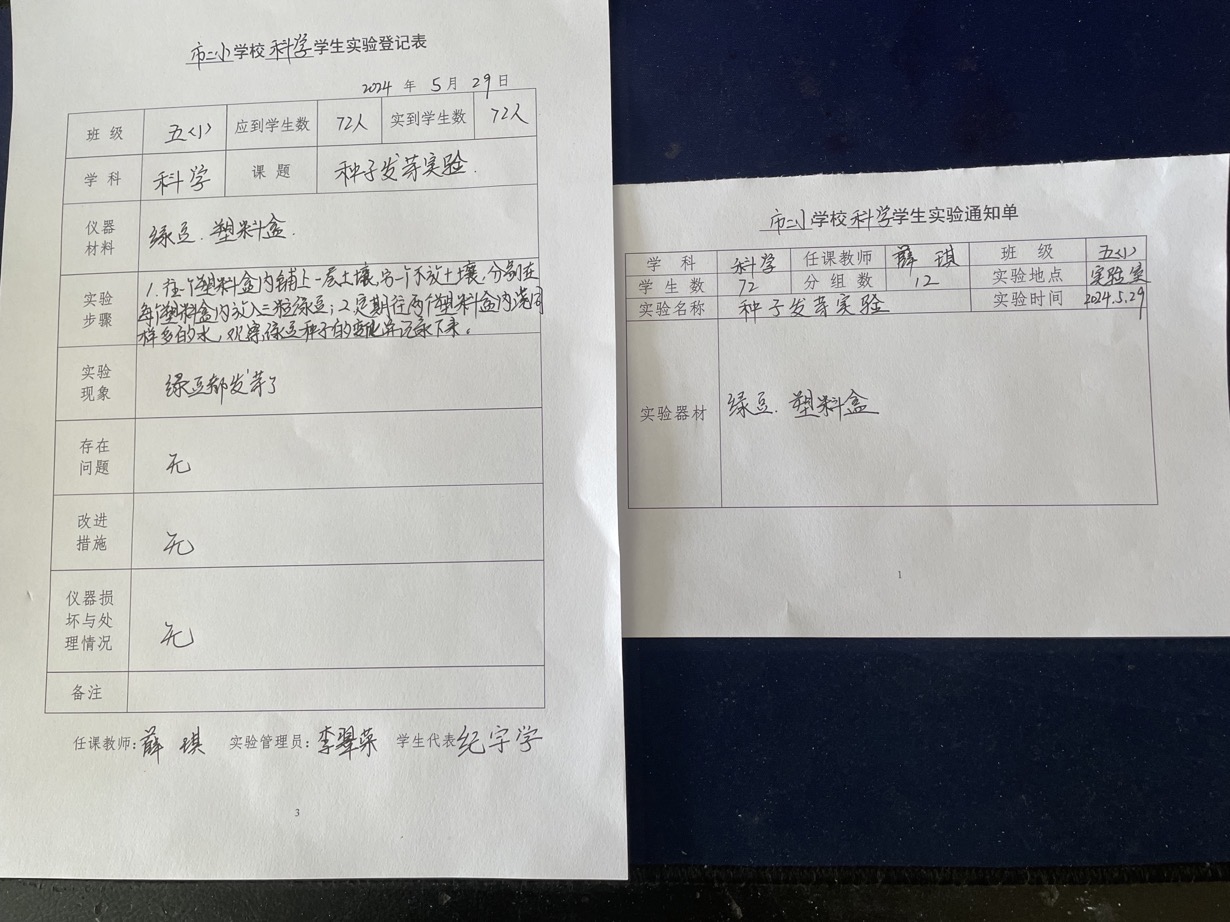 市二小学校科学学生实验登记表
2024 年 5 月 29 日
班 级 五(1) 应到学生数 72人 实到学生数 72人
学 科 科学 课 题 种子发芽实验.
仪器
材料
绿豆. 塑料盒.
实验
步骤
1. 在一个塑料盒内铺上一层土壤,另一个不放土壤,分别在
每个塑料盒内放入三粒绿豆;2.定期往两个塑料盒内浇同
样多的水,观察绿豆种子的变化并记录下来。
实验
现象
绿豆都发芽了
存在
问题
无
改进
措施
无
仪器损
坏与处
理情况
无
备注
任课教师:薛 琪 实验管理员:李翠荣 学生代表 纪宇学
3
市二小学校科学学生实验通知单
学 科 科学 任课教师 薛 琪 班 级 五(1)
学 生 数 72 分 组 数 12 实验地点 实验室
实验名称 种子发芽实验 实验时间 2024.5.29
实验器材 绿豆. 塑料盒
1